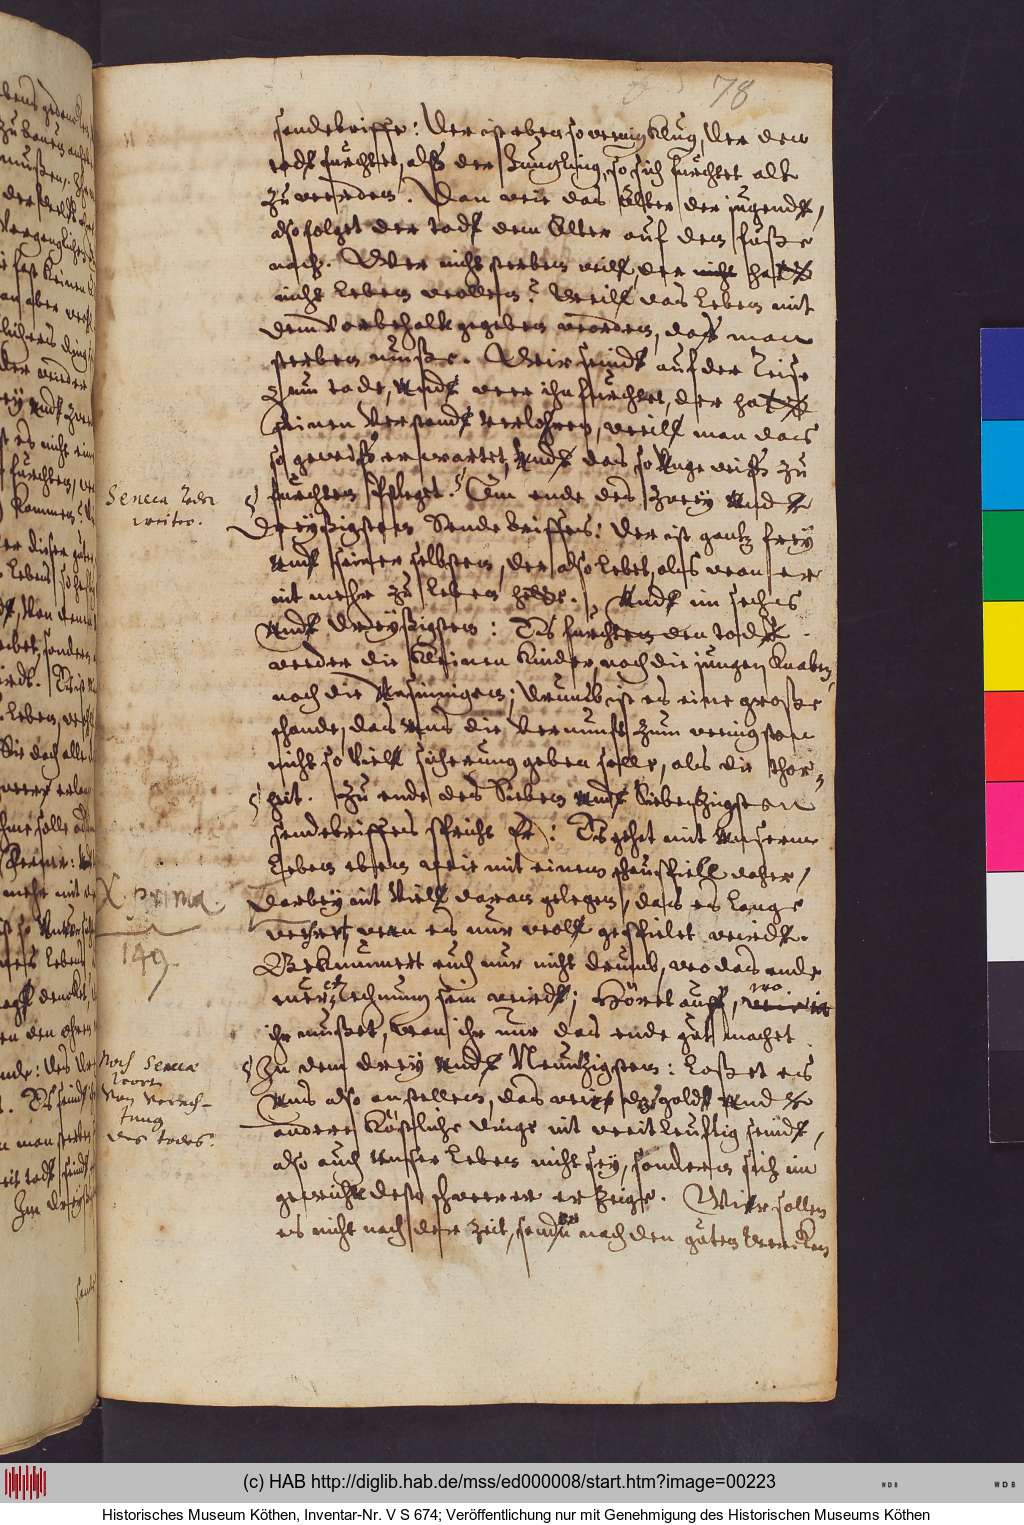 78
sendebriffe: Der ist eben so wenig klug, der den
todt furchtet, alß der Jungling, so sich furchtet alt
zu werden. Dan wie das Alter der jugendt,
also folget der todt dem Alter auf dem fuße
nach. Wer nicht sterben will, der hatt
nicht leben wollen: Weill das leben mit
dem vorbehalt gegeben worden, daß man
sterben muße. Wir seindt auf der Reise
zum tode, Undt wer ihn furchtet, der hatt
seinen Verstandt verlohren, weill man das
so gewiß erwartet, Undt das so Ungewiß zu
furchten pfleget. Am ende des zwey Und
Seneca redet
weiter.
dreyßigsten Sendebriffes: Der ist gantz frey
Undt seiner selbsten, der also lebet, als wan er
nit mehr zu leben hette. Undt im sechs
Undt dreyßigsten: Es furchten den todt
weder die kleinen kinder, noch die jungen knaben,
noch die Unsinnigen; drumb ist es eine große
schande, das uns die Vernunft zum wenigsten
nicht so Viell sicherung geben solle, als die thor-
heit. Zu ende des Sieben Undt Siebentzigsten
sendebriffes spricht Er: Es gehet mit Unserm
leben eben wie mit einem schauspiell daher,
X. prima.
149.
darbey nit Viell daran gelegen, das es lange
wehret, wan es nur woll gespielet wirdt.
Bekummert euch nur nicht drumb, wo das ende
der rechnung sein wirdt; Höret auf, wo
ihr musset, wan ihr nur das ende gut machet.
Noch Seneca
wort
von verach-
tung
des todes.
In dem drey Undt Neuntzigsten: Laßet es
Uns also anstellen, das wie das goldt Und
andere köstliche dinge nit weitleuftig seindt,
also auch unser leben nicht sey, sondern sich im
gewicht desto schwerer erzeige. Wir sollen
es nicht nach der zeit, sondern nach den guten Wercken
(c) HAB http://diglib.hab.de/mss/ed000008/start.htm?image=00223
Historisches Museum Köthen, Inventar-Nr. V S 674; Veröffentlichung nur mit Genehmigung des Historischen Museums Köthen